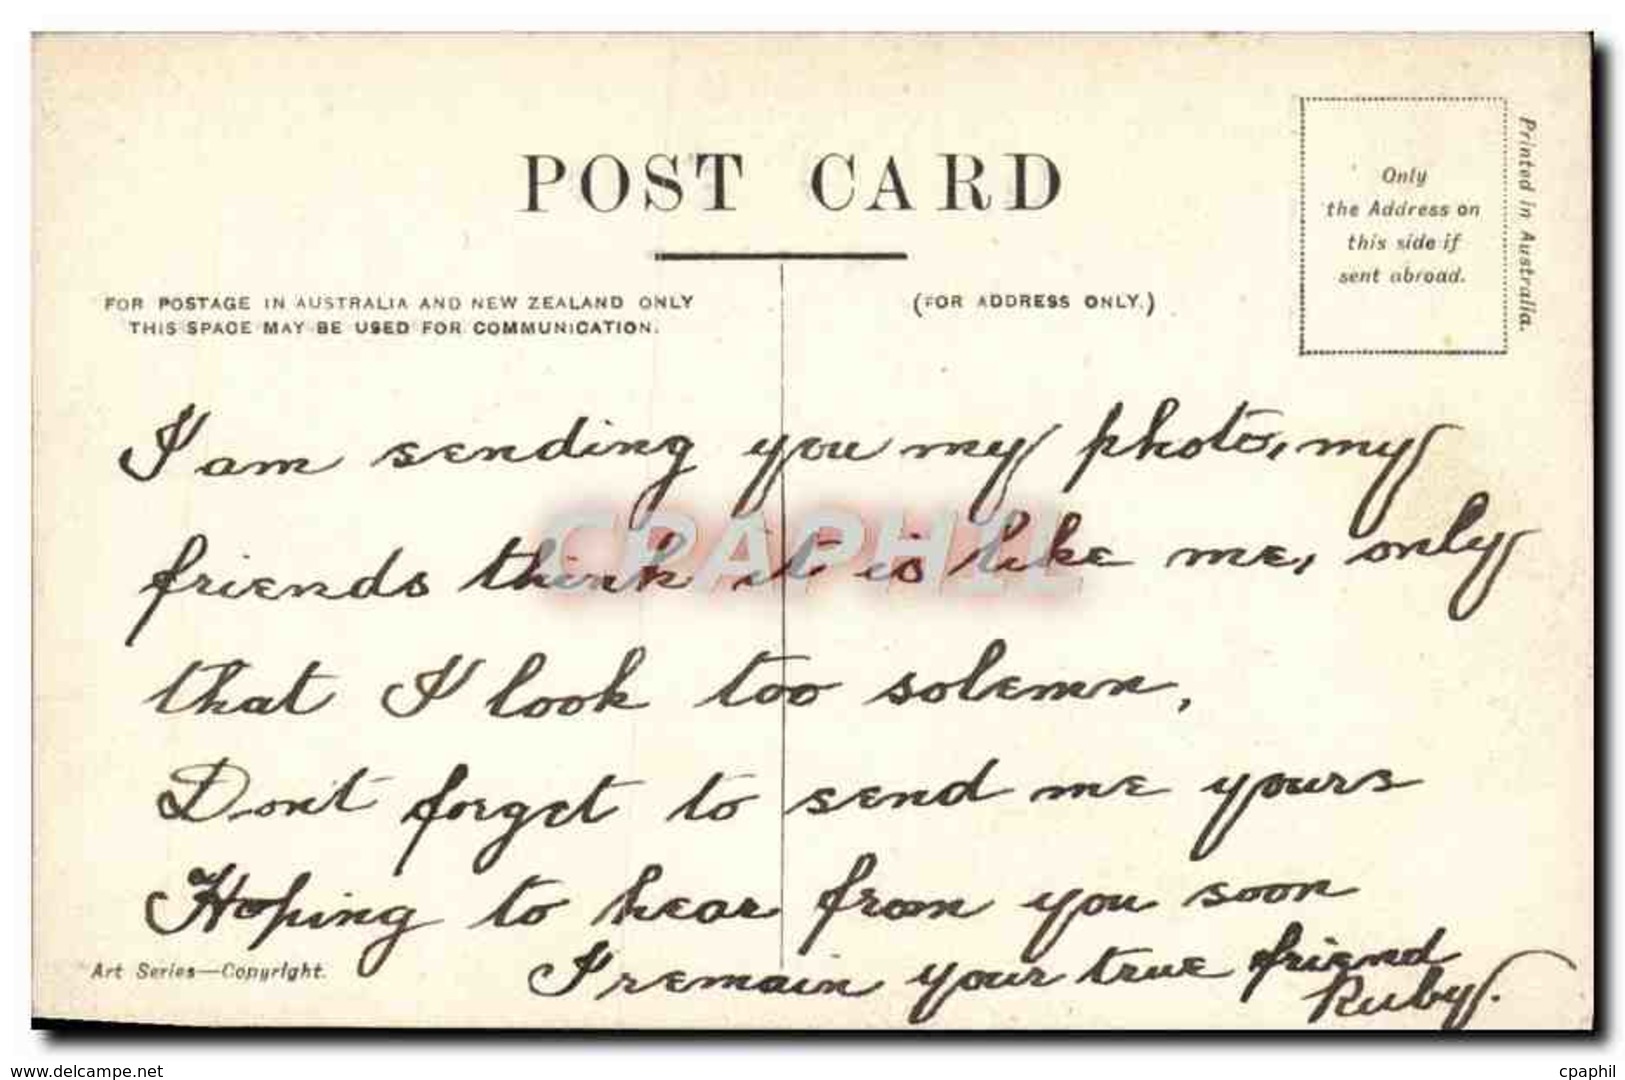 POST CARD
Only
the Address on
this side if
sent abroad.
Printed in Australia.
FOR POSTAGE IN AUSTRALIA AND NEW ZEALAND ONLY
THIS SPACE MAY BE USED FOR COMMUNICATION.
(FOR ADDRESS ONLY.)
I am sending you my photo, my
friends think it is like me, only
that I look too solemn,
Don't forget to send me yours
Hoping to hear from you soon
I remain your true friend
Ruby.
Art Series—Copyright.
CPAPHIL
www.delcampe.net
cpaphil